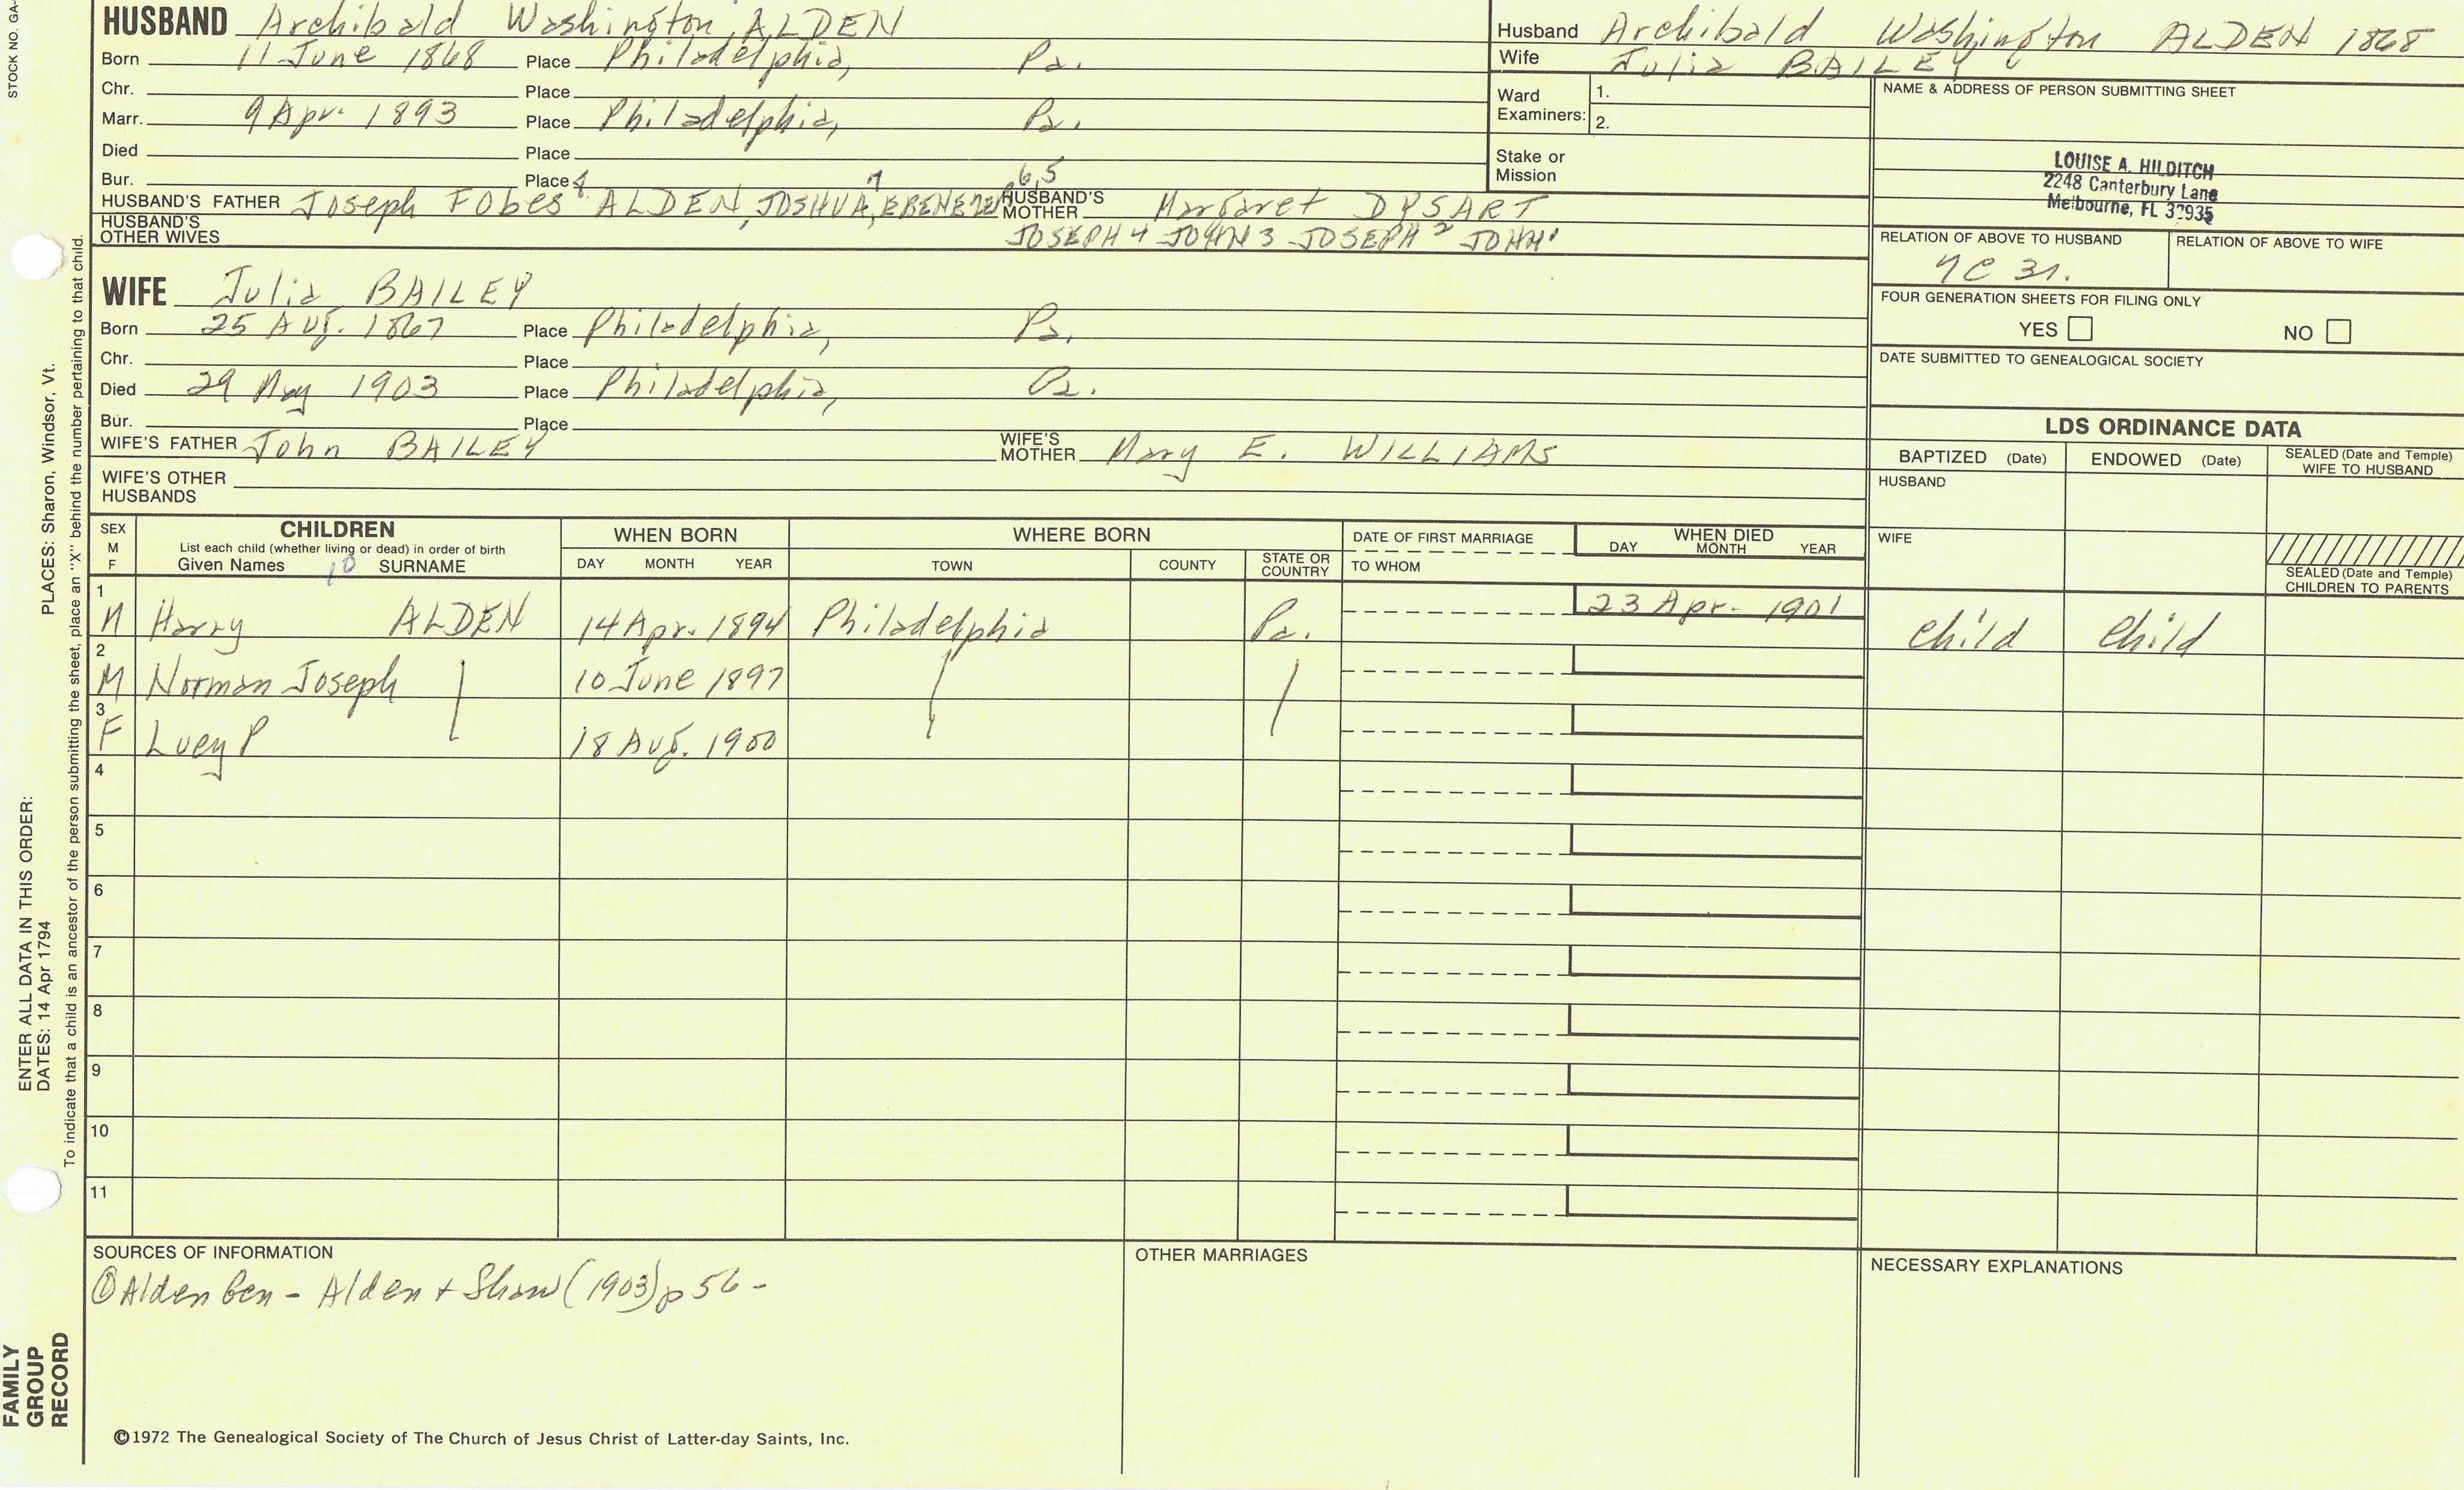 STOCK NO. GA-
HUSBAND Archibald Washington ALDEN
Born 11 June 1868 Place Philadelphia, Pa.
Chr. Place
Marr. 9 Apr. 1893 Place Philadelphia, Pa.
Died Place
Bur. Place
HUSBAND'S FATHER Joseph Fobes 8 ALDEN, JOSHUA 7, EBENEZER 6,5 HUSBAND'S MOTHER Margaret DYSART
HUSBAND'S OTHER WIVES JOSEPH 4 JOHN 3 JOSEPH 2 JOHN 1
Husband Archibald Washington ALDEN 1868
Wife Julia BAILEY
Ward Examiners: 1.
2.
Stake or Mission
NAME & ADDRESS OF PERSON SUBMITTING SHEET
LOUISE A. HILDITCH
2248 Canterbury Lane
Melbourne, FL 32935
RELATION OF ABOVE TO HUSBAND RELATION OF ABOVE TO WIFE
7C 3r.
FOUR GENERATION SHEETS FOR FILING ONLY
YES NO
DATE SUBMITTED TO GENEALOGICAL SOCIETY
WIFE Julia BAILEY
Born 25 Aug. 1867 Place Philadelphia, Pa.
Chr. Place
Died 29 May 1903 Place Philadelphia, Pa.
Bur. Place
WIFE'S FATHER John BAILEY WIFE'S MOTHER Mary E. WILLIAMS
WIFE'S OTHER HUSBANDS
LDS ORDINANCE DATA
BAPTIZED (Date) ENDOWED (Date) SEALED (Date and Temple) WIFE TO HUSBAND
HUSBAND
WIFE
SEALED (Date and Temple) CHILDREN TO PARENTS
SEX M F
CHILDREN
List each child (whether living or dead) in order of birth
Given Names 10 SURNAME
WHEN BORN
DAY MONTH YEAR
WHERE BORN
TOWN COUNTY STATE OR COUNTRY
DATE OF FIRST MARRIAGE
TO WHOM
WHEN DIED
DAY MONTH YEAR
1 M Harry ALDEN 14 Apr. 1894 Philadelphia Pa. 23 Apr. 1901 child child
2 M Norman Joseph 10 June 1897
3 F Lucy P 18 Aug. 1900
4
5
6
7
8
9
10
11
SOURCES OF INFORMATION
① Alden Gen - Alden + Shaw (1903) p 56 -
OTHER MARRIAGES
NECESSARY EXPLANATIONS
©1972 The Genealogical Society of The Church of Jesus Christ of Latter-day Saints, Inc.
FAMILY
GROUP
RECORD
ENTER ALL DATA IN THIS ORDER:
DATES: 14 Apr 1794
PLACES: Sharon, Windsor, Vt.
To indicate that a child is an ancestor of the person submitting the sheet, place an "X" behind the number pertaining to that child.